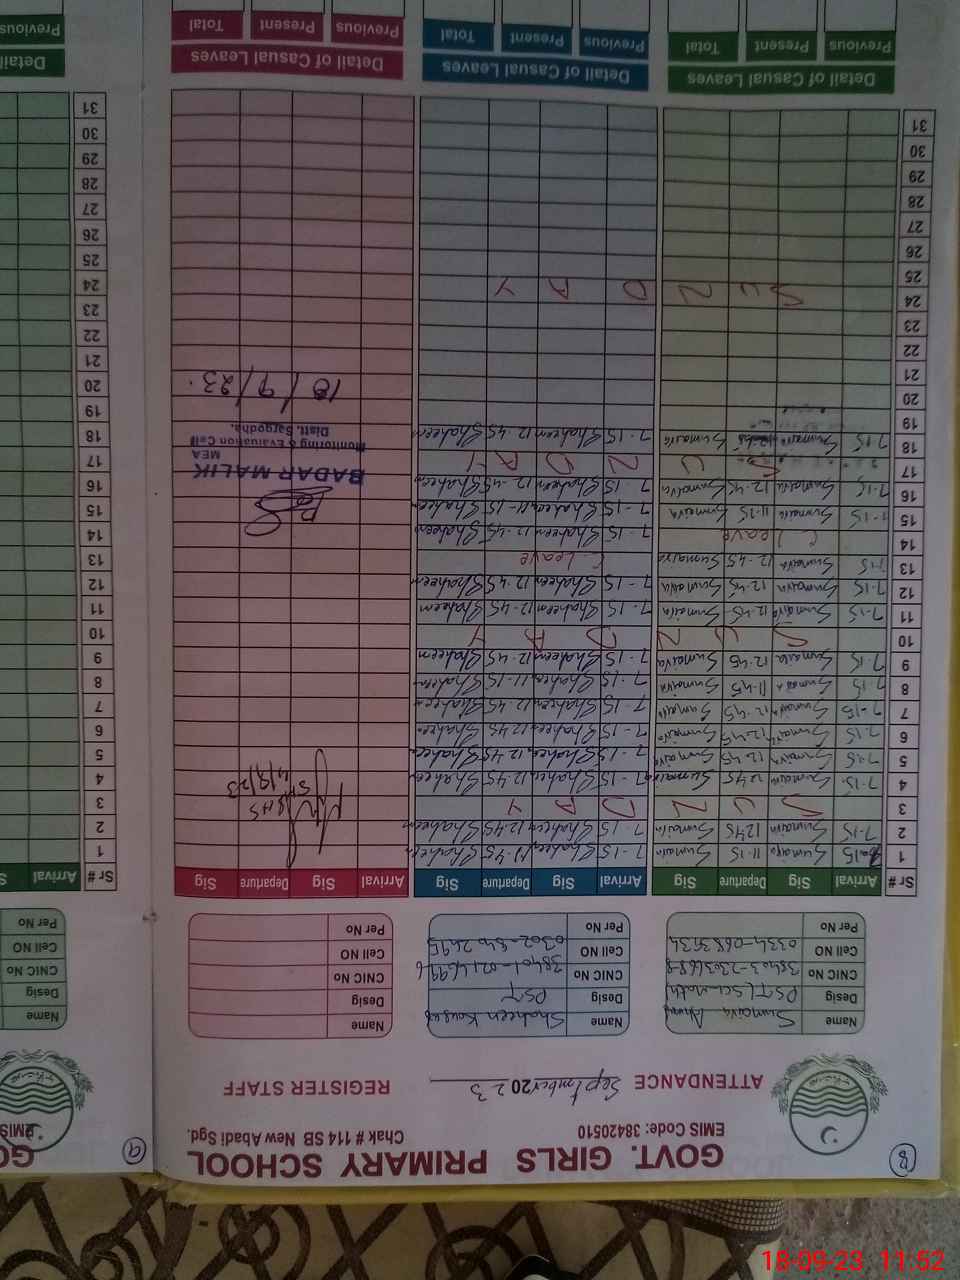 8
GOVT. GIRLS PRIMARY SCHOOL
EMIS Code: 38420510 Chak # 114 SB New Abadi Sgd.
ATTENDANCE September 2023 REGISTER STAFF
Name Sumaira
Desig PST(Sci-Math)
CNIC No
Cell NO
Per No
Name Shaheen Kousar
Desig PST
CNIC No
Cell NO
Per No
Name
Desig
CNIC No
Cell NO
Per No
Sr # Arrival Sig Departure Sig Arrival Sig Departure Sig Arrival Sig Departure Sig
1 7-15 Sumaira 11-15 Sumaira 7-15 Shaheen Shaheen
2 7-15 Sumaira 12-45 Sumaira 7-15 Shaheen 12-45 Shaheen
3 S U N D A Y
4 7-15 Sumaira 12-45 Sumaira 7-15 Shaheen 12-45 Shaheen 4/9/23
5 7-15 Sumaira 12-45 Sumaira 7-15 Shaheen 12-45 Shaheen
6 7-15 Sumaira 12-45 Sumaira 7-15 Shaheen 12-45 Shaheen
7 7-15 Sumaira 12-45 Sumaira 7-15 Shaheen 12-45 Shaheen
8 7-15 Sumaira 11-45 Sumaira 7-15 Shaheen 11-15 Shaheen
9 7-15 Sumaira 12-45 Sumaira 7-15 Shaheen 12-45 Shaheen
10 S U N D A Y
11 7-15 Sumaira 12-45 Sumaira 7-15 Shaheen 12-45 Shaheen
12 7-15 Sumaira 12-45 Sumaira 7-15 Shaheen 12-45 Shaheen
13 7-15 Sumaira 12-45 Sumaira C Leave
14 C Leave 7-15 Shaheen 12-45 Shaheen
15 7-15 Sumaira 11-15 Sumaira 7-15 Shaheen 11-15 Shaheen
16 7-15 Sumaira 12-45 Sumaira 7-15 Shaheen 12-45 Shaheen
17 S U N D A Y
18 7-15 Sumaira 12-45 Sumaira 7-15 Shaheen 12-45 Shaheen
BADAR MALIK
MEA
Monitoring & Evaluation Cell
Distt. Sargodha.
18/9/23.
19
20
21
22
23
24 S U N D A Y
25
26
27
28
29
30
31
Detail of Casual Leaves Detail of Casual Leaves Detail of Casual Leaves
Previous Present Total Previous Present Total Previous Present Total
9
GO
EMIS
Name
Desig
CNIC No
Cell NO
Per No
Sr # Arrival S
1
2
3
4
5
6
7
8
9
10
11
12
13
14
15
16
17
18
19
20
21
22
23
24
25
26
27
28
29
30
31
Detail
Previous
18-09-23 11:52